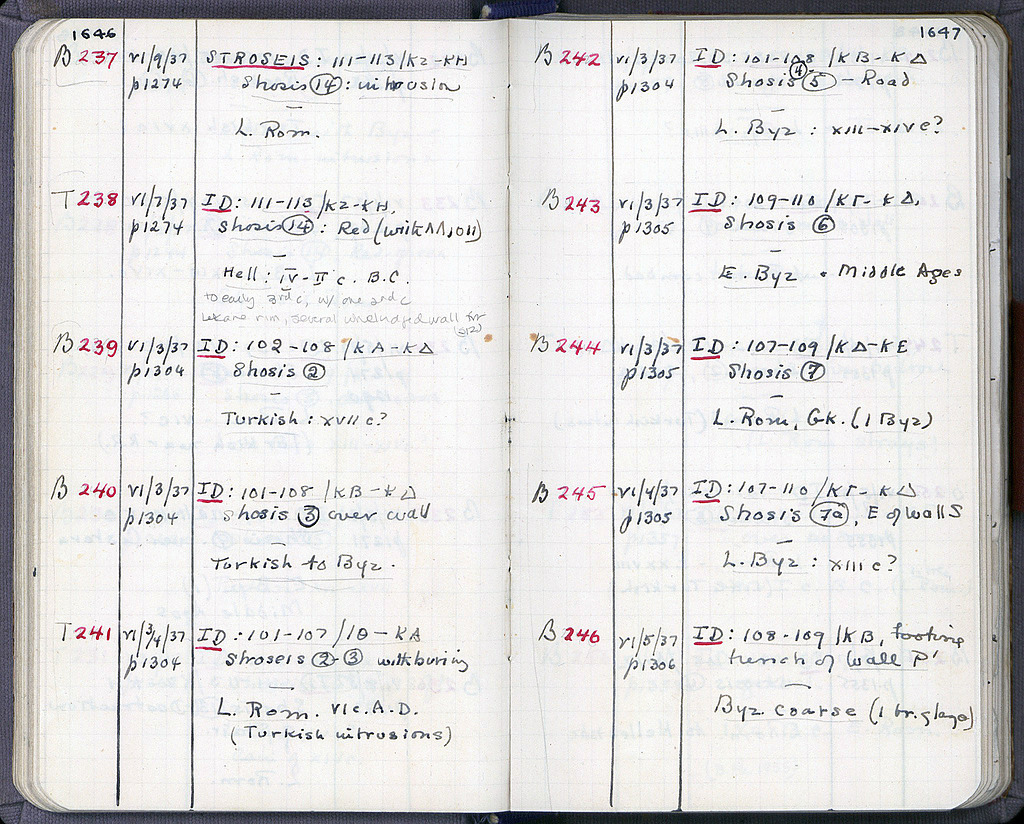 1646
B 237 VI/9/37 STROSEIS: 111-113/KZ-KH
p1274 Shosis (14): intrusion
L. Rom.
T 238 VI/7/37 ID: 111-113/KZ-KH,
p1274 Shosis (14): Red
Hell: IV-II c. B.C.
to early 3rd c, w/ one 2nd c
rim, several wall for
B 239 VI/3/37 ID: 102-108 /KA-KΔ
p1304 Shosis (2)
Turkish: XVII c?
B 240 VI/3/37 ID: 101-108 /KB-KΔ
p1304 Shosis (3) over wall
Turkish to Byz.
T 241 VI/3/4/37 ID: 101-107 /IΘ-KA
p1304 Stroseis (2)-(3) with burning
L. Rom. VI c. A.D.
(Turkish intrusions)
1647
B 242 VI/3/37 ID: 101-108 /KB-KΔ
p1304 Shosis (4) (5) - Road
L. Byz: XIII-XIV c?
B 243 VI/3/37 ID: 109-110 /KΓ-KΔ,
p1305 Shosis (6)
E. Byz. Middle Ages
B 244 VI/3/37 ID: 107-109 /KΔ-KE
p1305 Shosis (7)
L. Rom, Gk. (1 Byz)
B 245 VI/4/37 ID: 107-110 /KΓ-KΔ
p1305 Shosis (7a), E of wall S
L. Byz: XIII c?
B 246 VI/5/37 ID: 108-109 /KB, footing
p1306 trench of wall P'
Byz coarse (1 br. glaze)